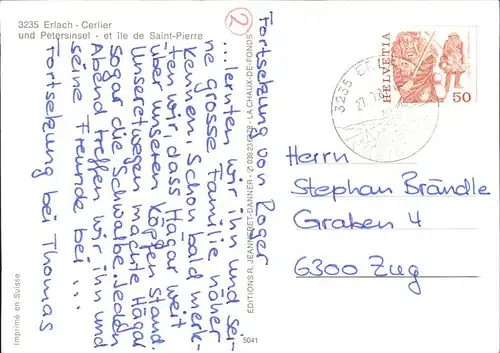 3235 Erlach - Cerlier
und Petersinsel - et île de Saint-Pierre
2
Fortsetzung von Roger
...lernten wir ihn und sei-
ne grosse Familie näher
kennen. Schon bald merk-
ten wir, dass Hägar weit
über unseren Köpfen stand.
Unseretwegen machte Hägar
sogar die Schwalbe. Jeden
Abend treffen wir ihn und
seine Freunde bei...
Fortsetzung bei Thomas
EDITIONS R. JEANNERET-DANNER - LA CHAUX-DE-FONDS
5041
Imprimé en Suisse
HELVETIA
50
3235
Herrn
Stephan Brändle
Graben 4
6300 Zug